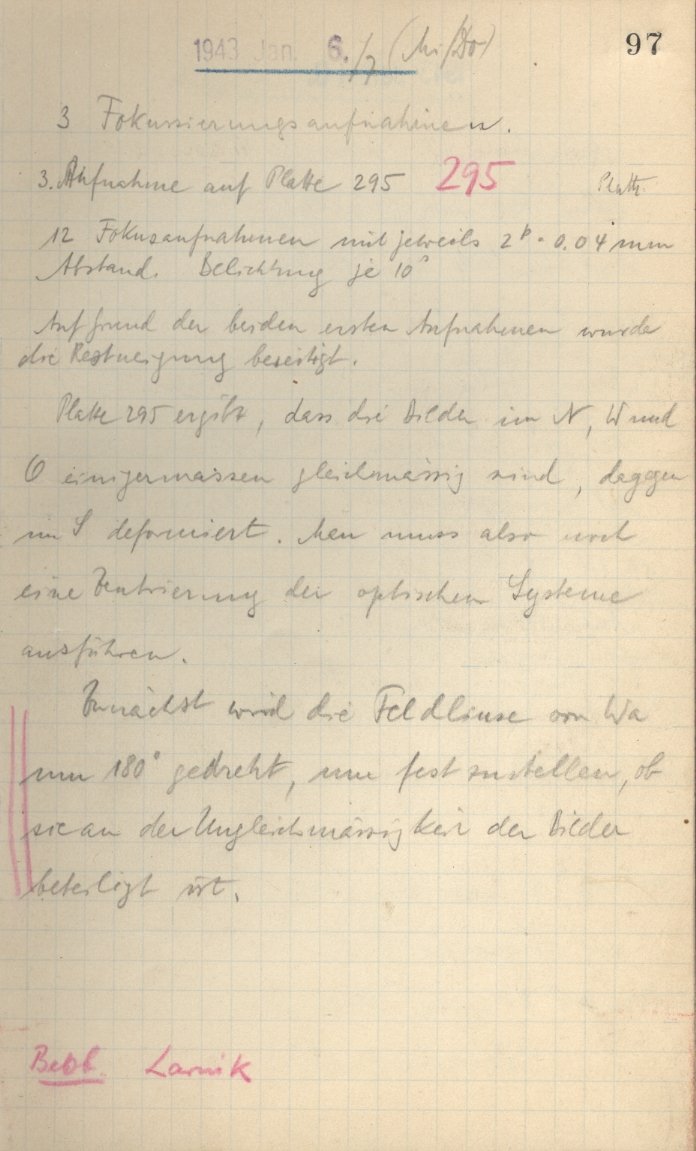 97
1943 Jan. 6./7 (Mi/Do)
3 Fokussierungsaufnahmen.
3. Aufnahme auf Platte 295 295 Platte
12 Fokusaufnahmen mit jeweils 2ᵖ = 0.04 mm
Abstand. Belichtung je 10ˢ
Auf grund der beiden ersten Aufnahmen wurde
die Restneigung beseitigt.
Platte 295 ergibt, dass die Bilder im N, W und
O einigermassen gleichmässig sind, dagegen
im S deformiert. Man muss also noch
eine Zentrierung der optischen Systeme
ausführen.
Zunächst wird die Feldlinse von
um 180° gedreht, um festzustellen, ob
sie an der Ungleichmässigkeit der Bilder
beteiligt ist.
Beob. Larink